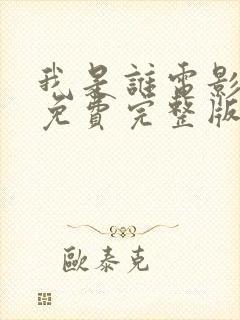 我是誰電影
免費完整版
歐泰克